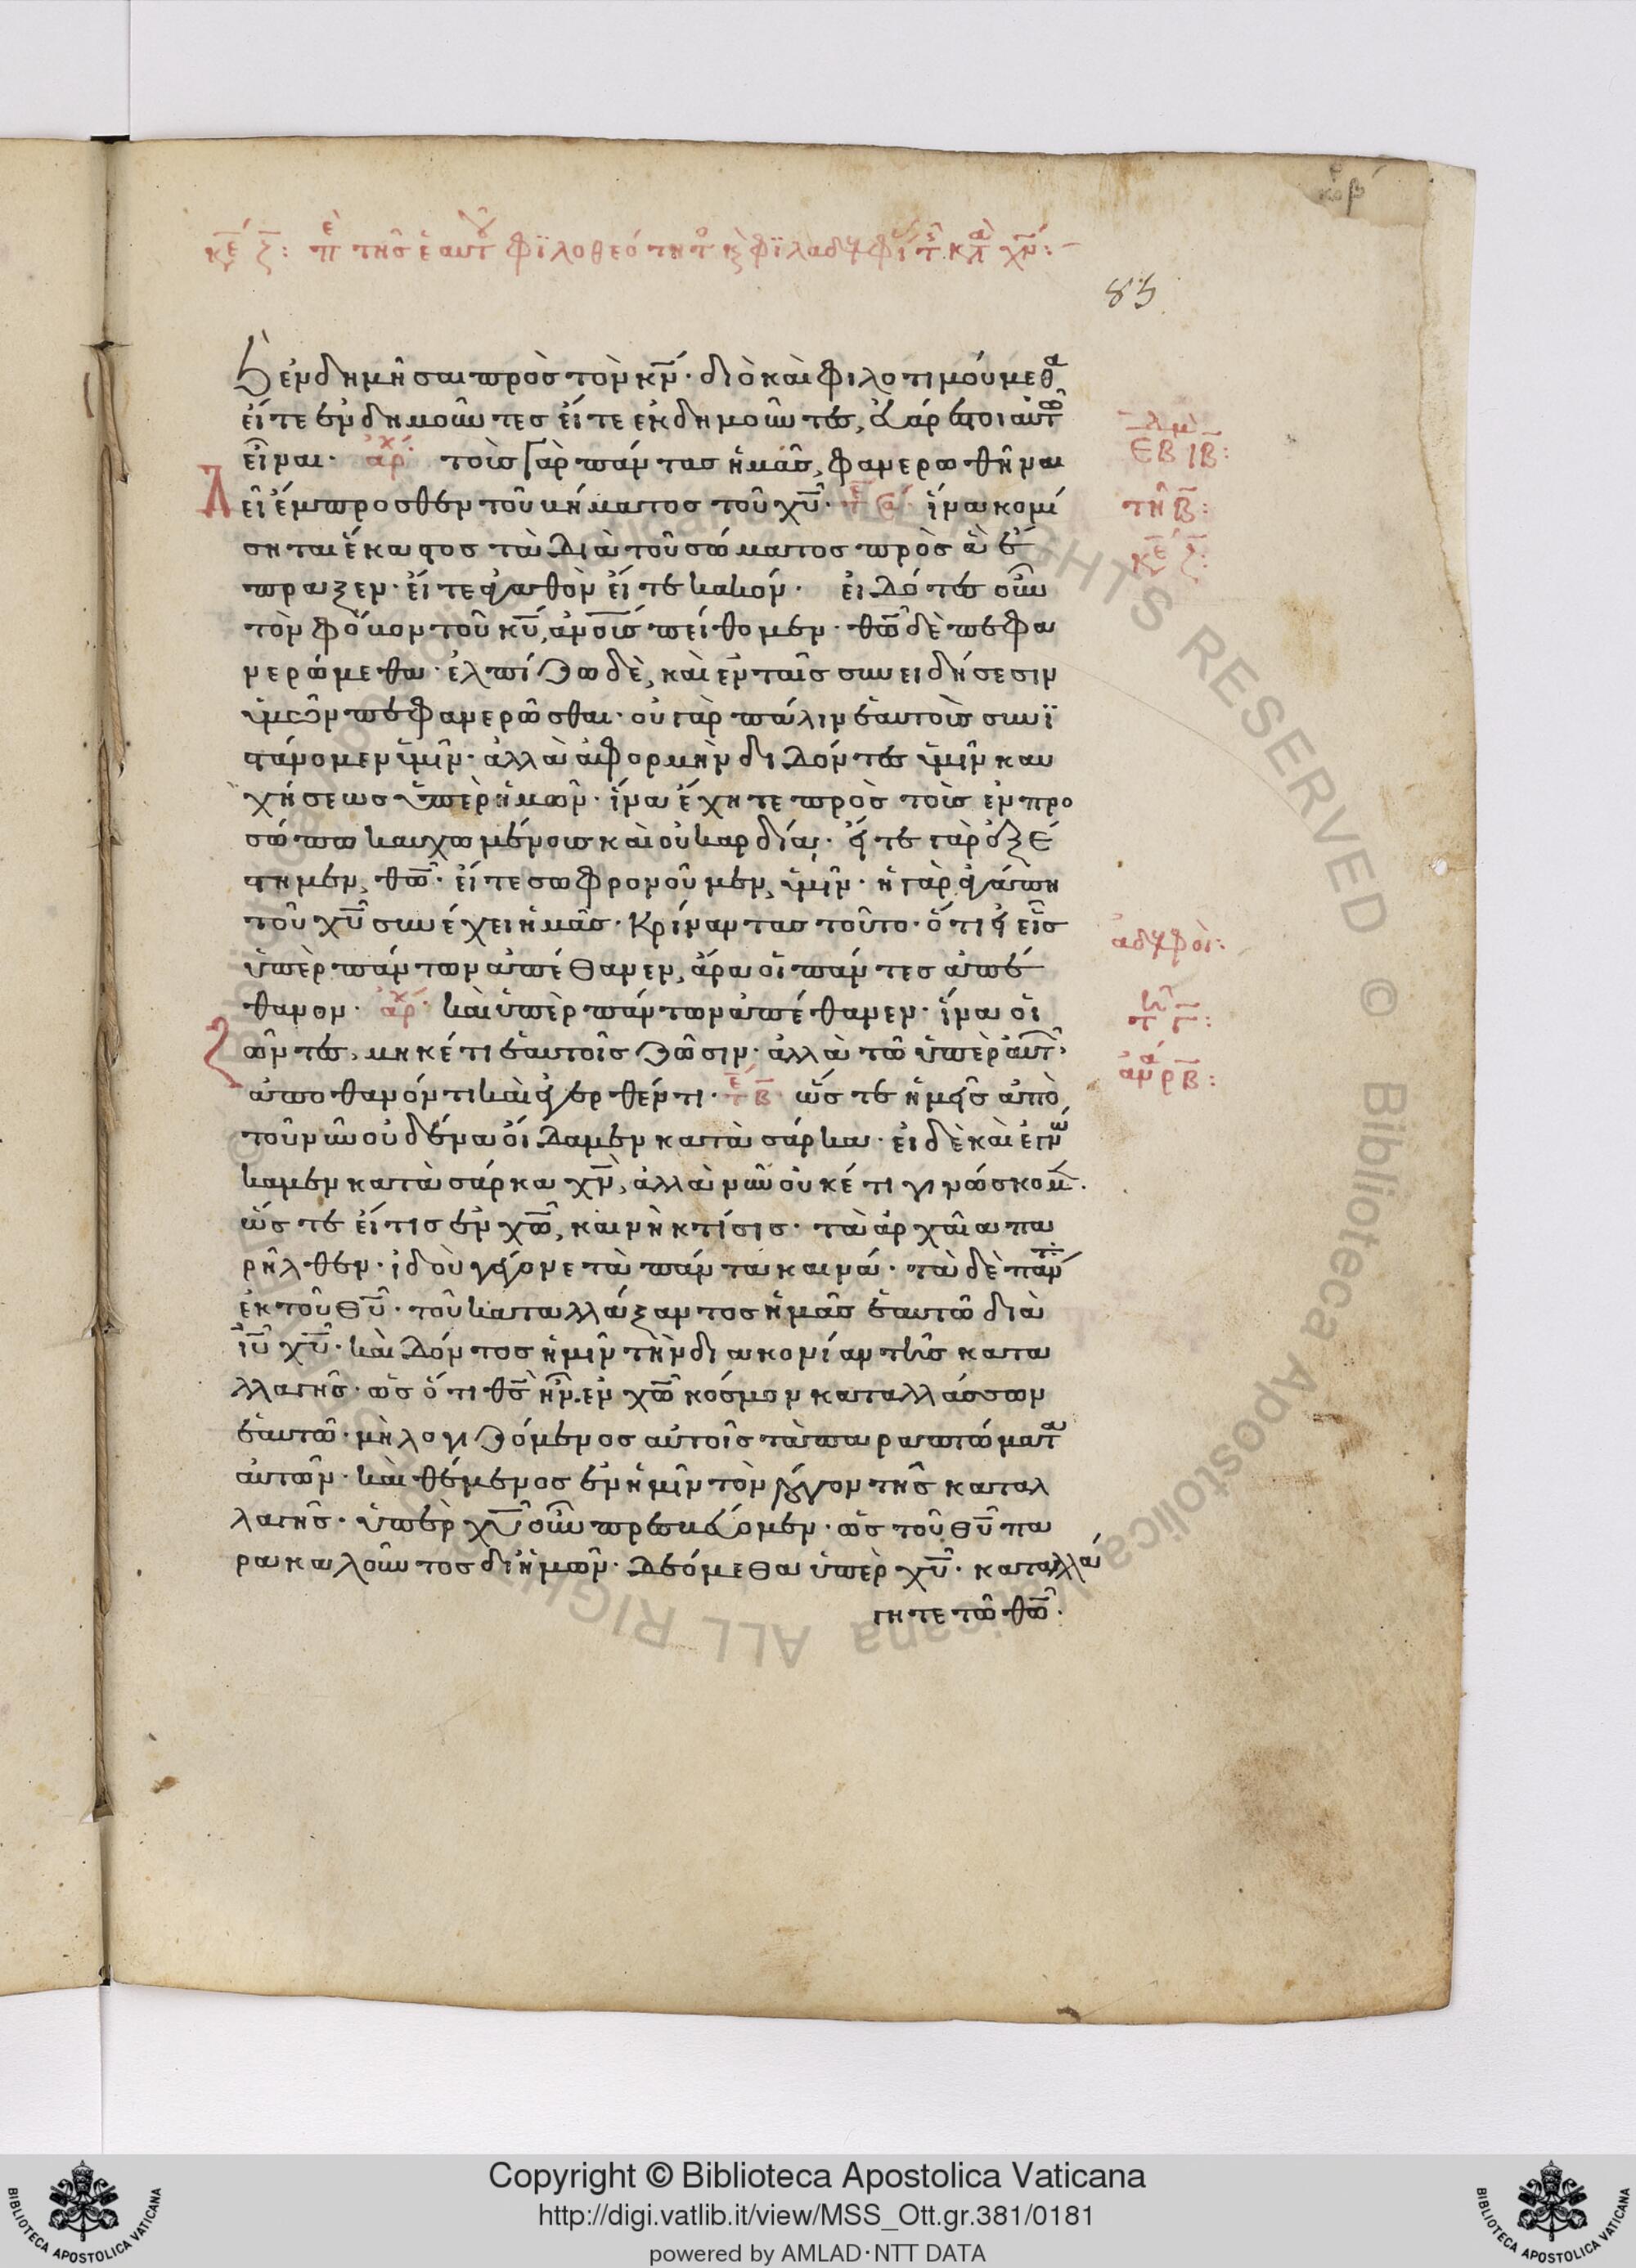 κε ζ: πε της εαυτ φϊλοθεότητ κ φϊλαδελφι τ κτ χν:
85
κ ἐνδημῆσαι πρὸς τὸν κν· διὸ καὶ φιλοτιμούμεθα
εἴτε ἐνδημοῦντες εἴτε ἐκδημοῦντες, εὐάρεστοι αὐτῶ
εἶναι· ἀρχ τοὺς γὰρ πάντας ἡμᾶς, φανερωθῆναι
δεῖ ἔμπροσθεν τοῦ βήματος τοῦ χυ· ἵνα κομί
σηται ἕκαστος τὰ διὰ τοῦ σώματος πρὸς ἃ ἔ
πραξεν· εἴτε ἀγαθὸν εἴτε κακόν· εἰδότες οὖν
τὸν φόβον τοῦ κυ, ἀνους πείθομεν· θω δὲ πεφα
νερώμεθα· ἐλπίζω δὲ, καὶ ἐν ταῖς συνειδήσεσιν
ὑμῶν πεφανερῶσθαι· οὐ γὰρ πάλιν ἑαυτοὺς συνϊ
στάνομεν ὑμῖν· ἀλλὰ ἀφορμὴν διδόντες ὑμῖν καυ
χήσεως ὑπὲρ ἡμῶν· ἵνα ἔχητε πρὸς τοὺς ἐν προ
σώπω καυχωμένους καὶ οὐ καρδία· εἴτε γὰρ ἐξέ
στημεν, θω· εἴτε σωφρονοῦμεν, ὑμῖν· ἡ γὰρ ἀγάπη
τοῦ χυ συνέχει ἡμᾶς· κρίναντας τοῦτο· ὅτι εἰ εἷς
ὑπὲρ πάντων ἀπέθανεν, ἄρα οἱ πάντες ἀπέ
θανον· ἀρχ καὶ ὑπὲρ πάντων ἀπέθανεν· ἵνα οἱ
ζῶντες, μηκέτι ἑαυτοῖς ζῶσιν· ἀλλὰ τῶ ὑπὲρ αὐτ
ἀποθανόντι καὶ ἐγερθέντι· ὥστε ἡμεῖς ἀπὸ
τοῦ νῦν οὐδένα οἴδαμεν κατὰ σάρκα· εἰ δὲ καὶ ἐγνώ
καμεν κατὰ σάρκα χν, ἀλλὰ νῦν οὐκέτι γινώσκομ·
ὥστε εἴ τις ἐν χω, καινὴ κτίσις· τὰ ἀρχαῖα πα
ρῆλθεν· ἰδοὺ γέγονε τὰ πάντα καινά· τὰ δὲ πάντ
ἐκ τοῦ θυ· τοῦ καταλλάξαντος ἡμᾶς ἑαυτῶ διὰ
ιυ χυ· καὶ δόντος ἡμῖν τὴν διακονίαν τῆς κατα
λλαγῆς· ὡς ὅτι θς ἦν ἐν χω κόσμον καταλλάσσων
ἑαυτῶ· μὴ λογιζόμενος αὐτοῖς τὰ παραπτώματα
αὐτῶν· καὶ θέμενος ἐν ἡμῖν τὸν λόγον τῆς καταλ
λαγῆς· ὑπὲρ χυ οὖν πρεσβεύομεν· ὡς τοῦ θυ πα
ρακαλοῦντος δι' ἡμῶν· δεόμεθα ὑπὲρ χυ· καταλλά
γητε τῶ θω·
ΕΒ ΙΒ:
τῆ Β:
κε ζ:
αδελφοὶ:
τ Γ:
Copyright © Biblioteca Apostolica Vaticana
http://digi.vatlib.it/view/MSS_Ott.gr.381/0181
powered by AMLAD·NTT DATA
BIBLIOTECA APOSTOLICA VATICANA
BIBLIOTECA APOSTOLICA VATICANA